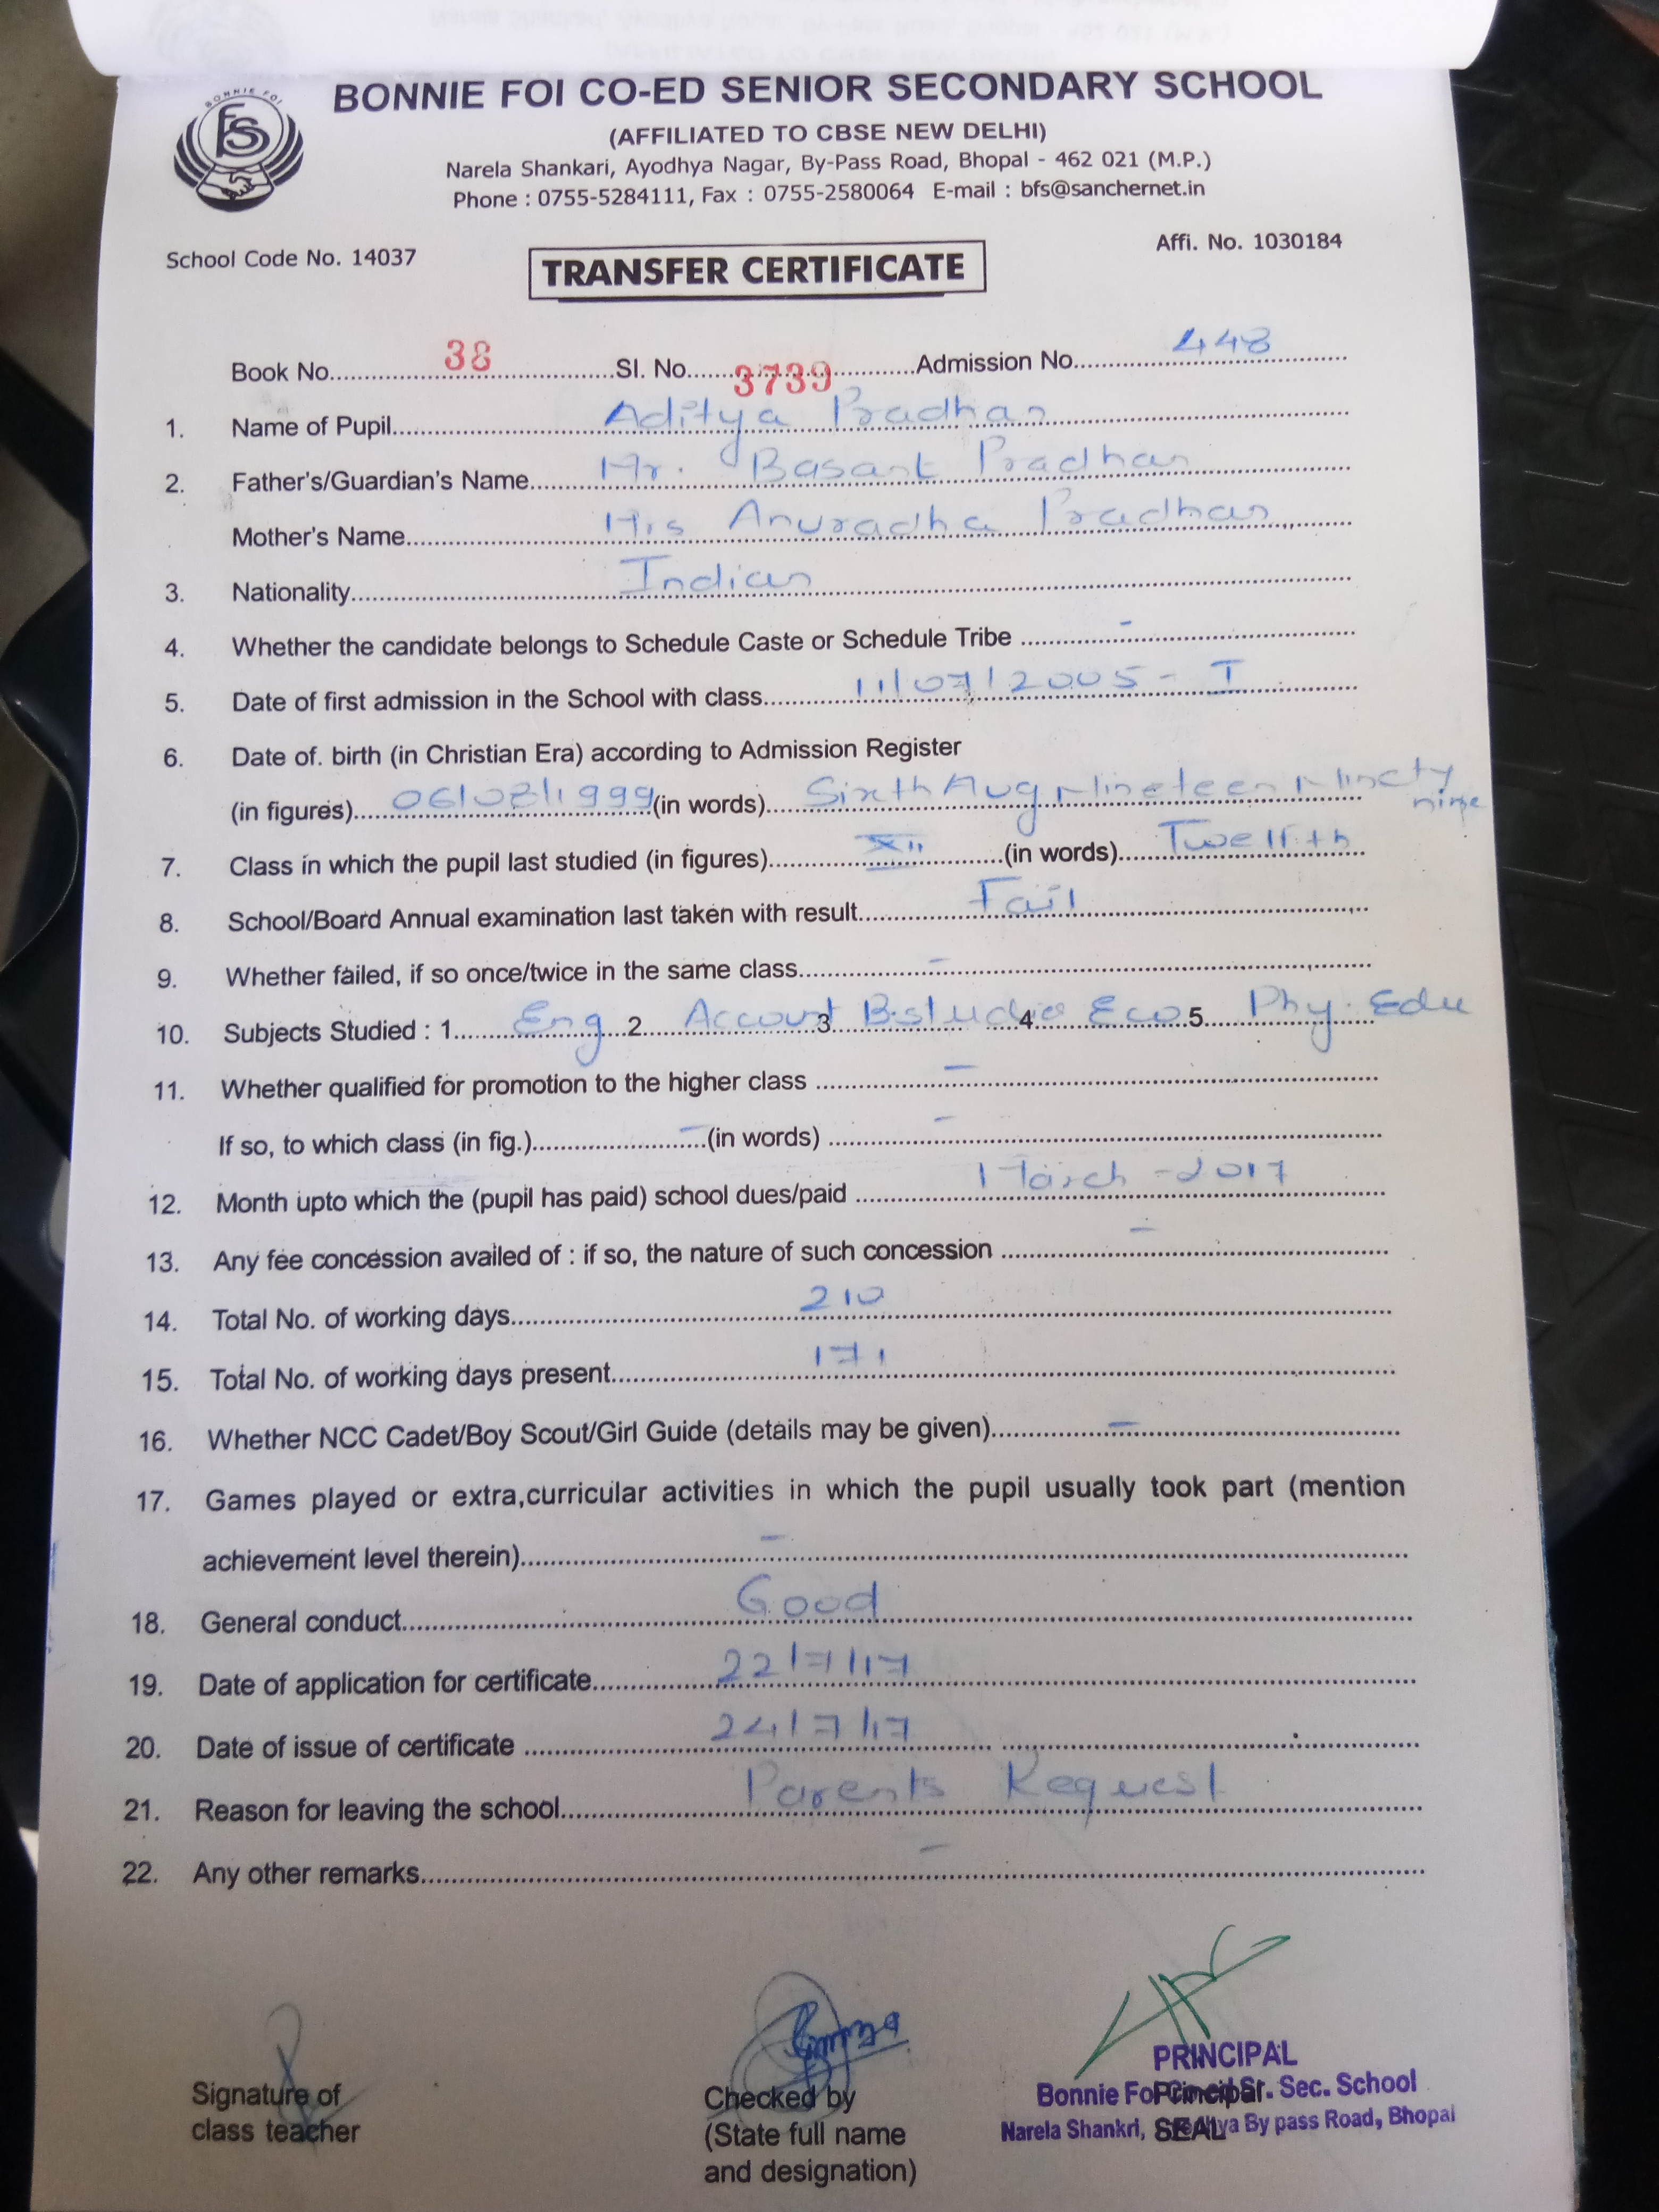 BONNIE FOI
FS
BONNIE FOI CO-ED SENIOR SECONDARY SCHOOL
(AFFILIATED TO CBSE NEW DELHI)
Narela Shankari, Ayodhya Nagar, By-Pass Road, Bhopal - 462 021 (M.P.)
Phone : 0755-5284111, Fax : 0755-2580064 E-mail : bfs@sanchernet.in
School Code No. 14037
Affi. No. 1030184
TRANSFER CERTIFICATE
Book No. 38 Sl. No. 3739 Admission No. 448
1. Name of Pupil Aditya Pradhan
2. Father's/Guardian's Name Mr. Basant Pradhan
Mother's Name Mrs Anuradha Pradhan
3. Nationality Indian
4. Whether the candidate belongs to Schedule Caste or Schedule Tribe -
5. Date of first admission in the School with class 11/07/2005 - I
6. Date of. birth (in Christian Era) according to Admission Register
(in figures) 06/08/1999 (in words) Sixth Aug Nineteen Ninety nine
7. Class in which the pupil last studied (in figures) XII (in words) Twelfth
8. School/Board Annual examination last taken with result Fail
9. Whether failed, if so once/twice in the same class -
10. Subjects Studied : 1 Eng 2 Account 3 B.studies 4 Eco 5 Phy. Edu
11. Whether qualified for promotion to the higher class -
If so, to which class (in fig.) - (in words) -
12. Month upto which the (pupil has paid) school dues/paid March - 2017
13. Any fee concession availed of : if so, the nature of such concession -
14. Total No. of working days 210
15. Total No. of working days present 171
16. Whether NCC Cadet/Boy Scout/Girl Guide (details may be given) -
17. Games played or extra,curricular activities in which the pupil usually took part (mention
achievement level therein) -
18. General conduct Good
19. Date of application for certificate 22/7/17
20. Date of issue of certificate 24/7/17
21. Reason for leaving the school Parents Request
22. Any other remarks -
Signature of
class teacher
Checked by
(State full name
and designation)
PRINCIPAL
Bonnie Foi Sr. Sec. School
Principal
Narela Shankri, By pass Road, Bhopal
SEAL